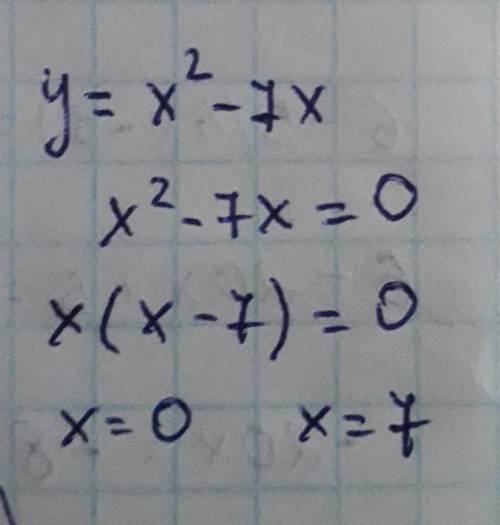 y = x² - 7x
x² - 7x = 0
x(x - 7) = 0
x = 0 x = 7